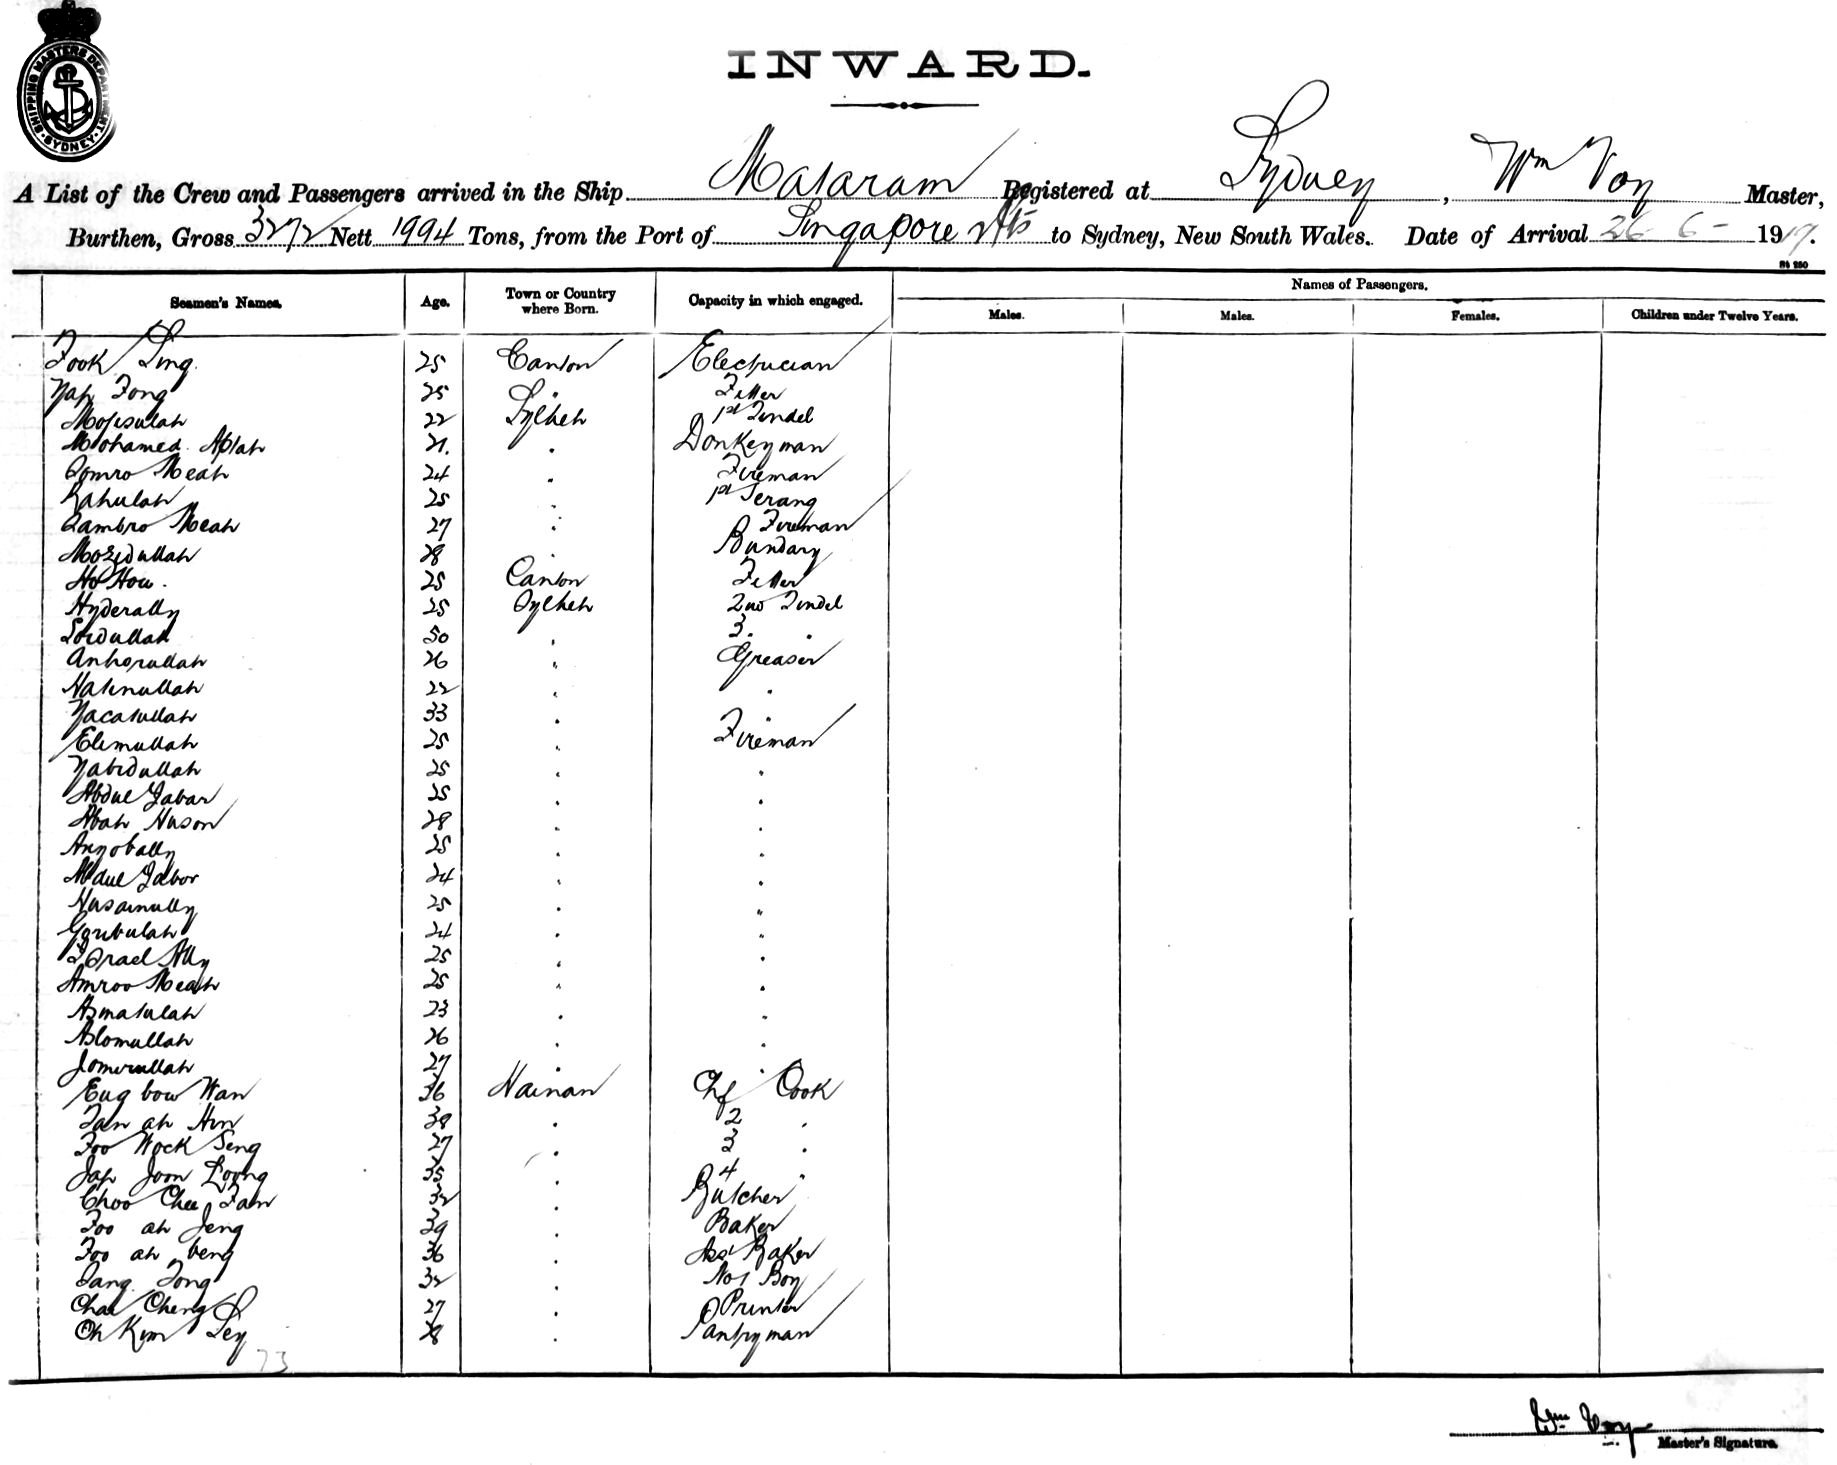 SHIPPING MASTERS DEPARTMENT SYDNEY
INWARD.
A List of the Crew and Passengers arrived in the Ship Mataram Registered at Sydney, Wm Voy Master,
Burthen, Gross 3272 Nett 1994 Tons, from the Port of Singapore to Sydney, New South Wales. Date of Arrival 26-6-1917.
Seamen's Names. Age. Town or Country where Born. Capacity in which engaged. Names of Passengers.
Males. Males. Females. Children under Twelve Years.
Fook Sing. 25 Canton Electrician
Yap Fong 25 " Fitter
Mofisulah 22 Sylhet 1st Tindel
Mohamed 21. " Donkeyman
Somro Meah 24 " Fireman
Rahulah 25 " 1st Serang
Sambro Meah 27 " Fireman
Mozidullah 28 " Bundary
Ho How. 25 Canton Fitter
Hyderally 25 Sylhet 2nd Tindel
Soidullah 50 " 3. "
26 " Greaser
22 " "
Yacatullah 33 " "
Elimullah 25 " Fireman
Yabidullah 25 " "
Abdul Jabar 25 " "
Abah Huson 28 " "
Anyobally 25 " "
Abdul Jabor 24 " "
Husainully 25 " "
Goribulah 24 " "
Israel Ally 25 " "
Amroo Meah 25 " "
Asmatulah 23 " "
Aslomullah 26 " "
Jomirullah 27 " "
Eug bow Wan 36 Hainan Chf Cook
Tan ah Hin 38 " 2 "
Foo Wock Seng 27 " 3 "
Jap Joon Loong 35 " 4 "
Choo Chee Fam 32 " Butcher
Foo ah Jeng 39 " Baker
Foo ah beng 36 " Ass Baker
Tang Tong 32 " No 1 Boy
Chai Cheng 27 " Printer
Oh Kim Sey 28 " Pantryman
73
Wm Voy
Master's Signature.